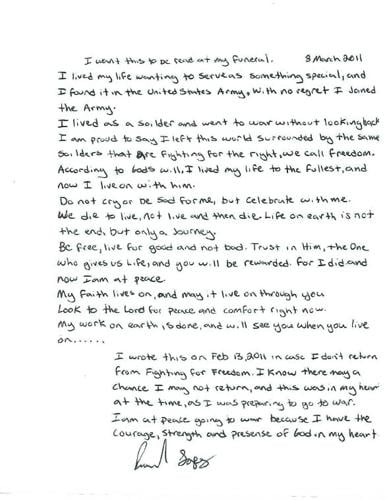 I want this to be read at my funeral. 8 March 2011
I lived my life wanting to serve as something special, and
I found it in the United States Army, With no regret I Joined
the Army.
I lived as a soilder and went to war without looking back
I am proud to say I left this world surrounded by the same
soilders that are fighting for the right, we call Freedom.
According to God's will, I lived my life to the Fullest, and
now I live on with him.
Do not cry or be sad for me, but celebrate with me.
We die to live, not live and then die. Life on earth is not
the end, but only a Journey.
Be free, live for good and not bad. Trust in Him, the One
who gives us Life, and you will be rewarded. For I did and
now I am at peace.
My Faith lives on, and may it live on through you
Look to the Lord for peace and comfort right now.
My work on earth is done, and will see you when you live
on......
I wrote this on Feb 13, 2011 in case I don't return
From Fighting for Freedom. I Know there may a
chance I may not return, and this was in my hear
at the time, as I was preparing to go to war.
I am at peace going to war because I have the
courage, strength and presense of God in my heart